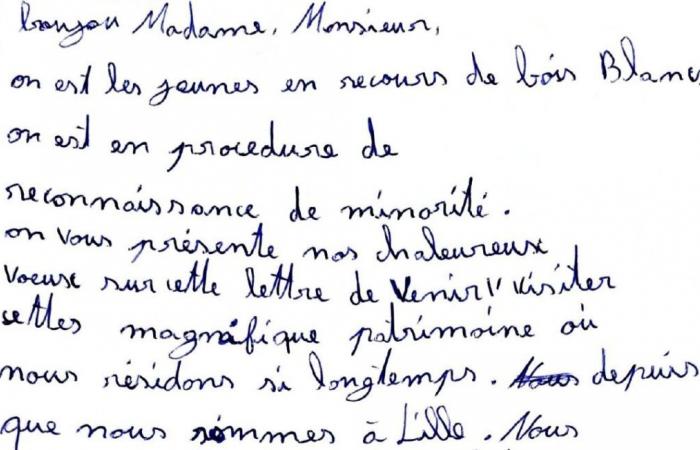 bonjou Madame, Monsieur,
on est les jeunes en recours de bois Blanc
on est en procedure de
reconnaissance de minorité.
on vous présente nos chaleureux
voeux sur cette lettre de venir visiter
cettes magnifique patrimoine où
nous résidons si longtemps. Nous depuis
que nous sommes à Lille. Nous